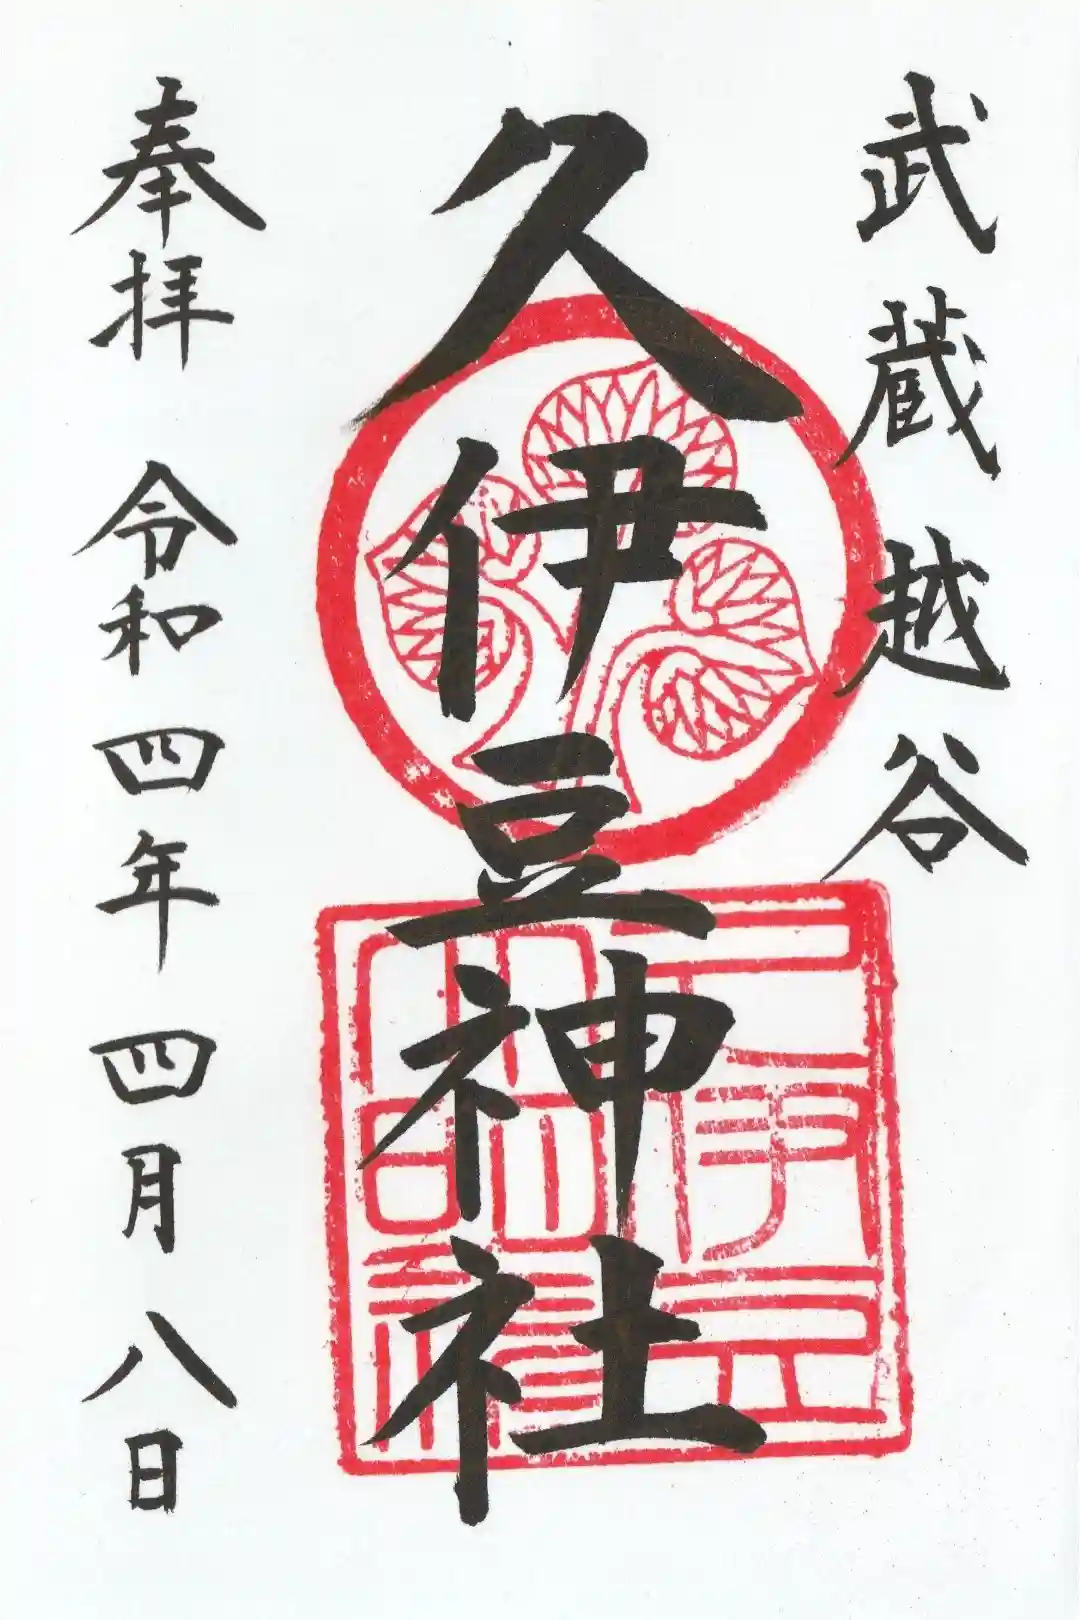 武蔵越谷
久伊豆神社
奉拝 令和四年四月八日